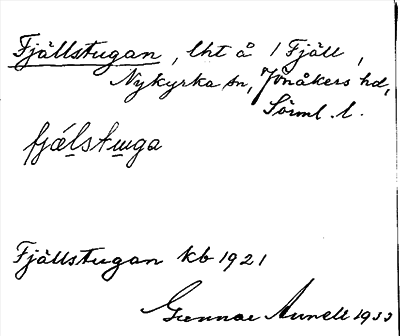 Fjällstugan, lht å 1 Fjäll,
Nykyrka sn, Jönåkers hd,
Sörml. l.
fjälstuga
Fjällstugan kb 1921
Gunnar Aunell 1933